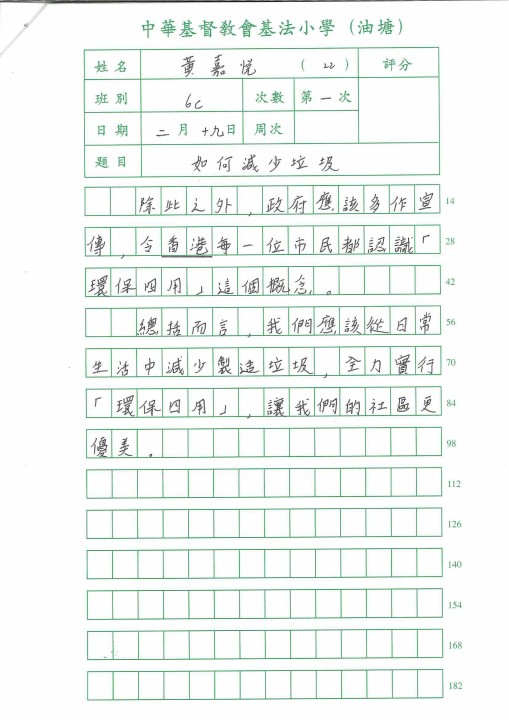 中華基督教會基法小學（油塘）
姓名 黃嘉悅 （22） 評分
班別 6C 次數 第一次
日期 二月十九日 周次
題目 如何減少垃圾
除此之外，政府應該多作宣 14
傳，令香港每一位市民都認識「 28
環保四用」這個概念。 42
總括而言，我們應該從日常 56
生活中減少製造垃圾，全力實行 70
「環保四用」，讓我們的社區更 84
優美。 98
112
126
140
154
168
182